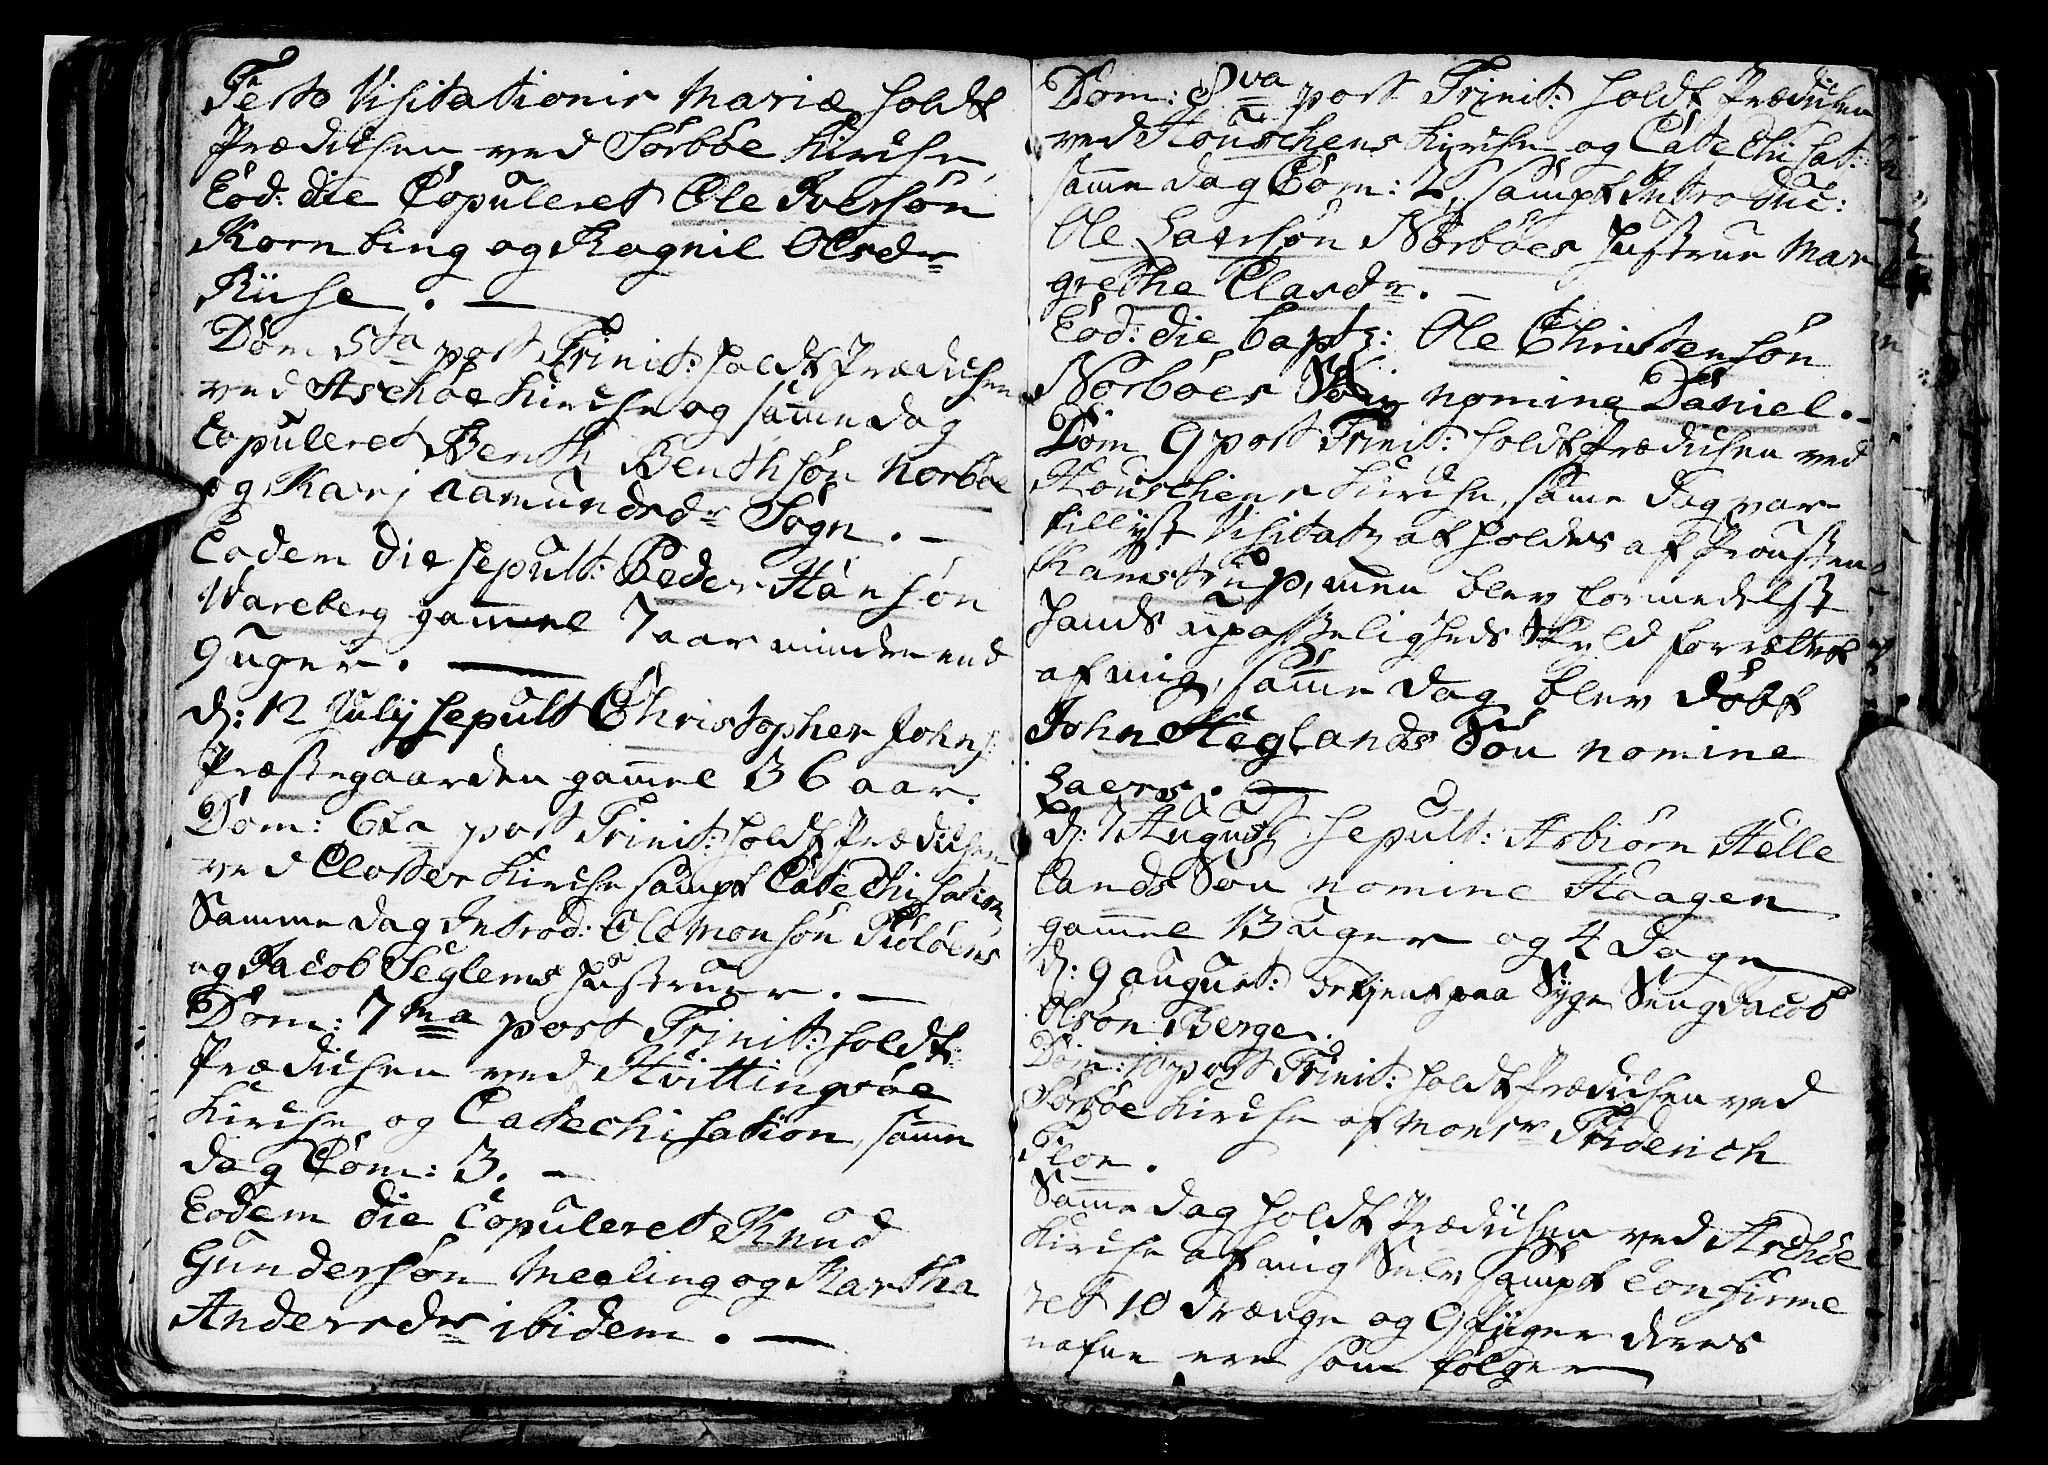 Festo Visitationis Mariæ holdt
Prædichen ved Sørbøe Kirche
Eod: die Copuleret Ole Iversøn
Kornbing og Ragnil Olsdr
Riise. —
Dom 5ta post Trinit: holdt Prædichen
ved Aschøe Kirche og samme dag
Copuleret Benth Benthsøn Norbøe
og Kari Aamundsdr Sogn. —
Eodem die sepult: Peder Hansøn
Wareberg gammel 7 aar minder end
9 uger. —
d: 12 July sepult Christopher Johns:
Præstegaarden gammel 36 aar.
Dom: 6ta post Trinit: holdt Prædichen
ved Closter Kirche sampt Catechisation
Samme dag Introd: Ole Monsøn
og Jacob Seglems Hustruer. —
Dom: 7ma post Trinit: holdt
Prædichen ved Hvittingsøe
Kirche og Catechisation, samme
dag Com: 3. —
Eodem die Copuleret Knud
Gundersøn Meeling og Martha
Andersdr ibidem. —
Dom: 8va post Trinit: holdt Prædichen
ved Houschens Kirche og Catechisat:
samme dag Com: 2, sampt Introduc:
Ole Laersøn Norbøes Hustrue Mar
grethe Clasdr. —
Eod: die bapt: Ole Christensøn
Norbøes Søn nomine Daniel. —
Dom 9 post Trinit: holdt Prædichen ved
Houschens Kirche, samme Dag var
tillyst Visitatz at holdes af Prousten
Kamstrup, men blev formedelst
hands upasseligheds skyld forrettet
af mig, samme dag blev døbt
John Heglands Søn nomine
Laers. —
d: 7 August sepult: Asbiørn Helle
lands Søn nomine Haagen
gammel 13 uger og 4 Dage
d: 9 august: betjent paa Syge Seng Jacob
Olsøn Berge.
Dom: 10 post Trinit: holdt Prædichen ved
Sørbøe Kirche af Monsr Friderich
Samme dag holdt Prædichen ved Aschøe
Kirche af mig Selv, sampt Confirme
ret 10 drænge og 9 piiger deres
nafne ere som følger